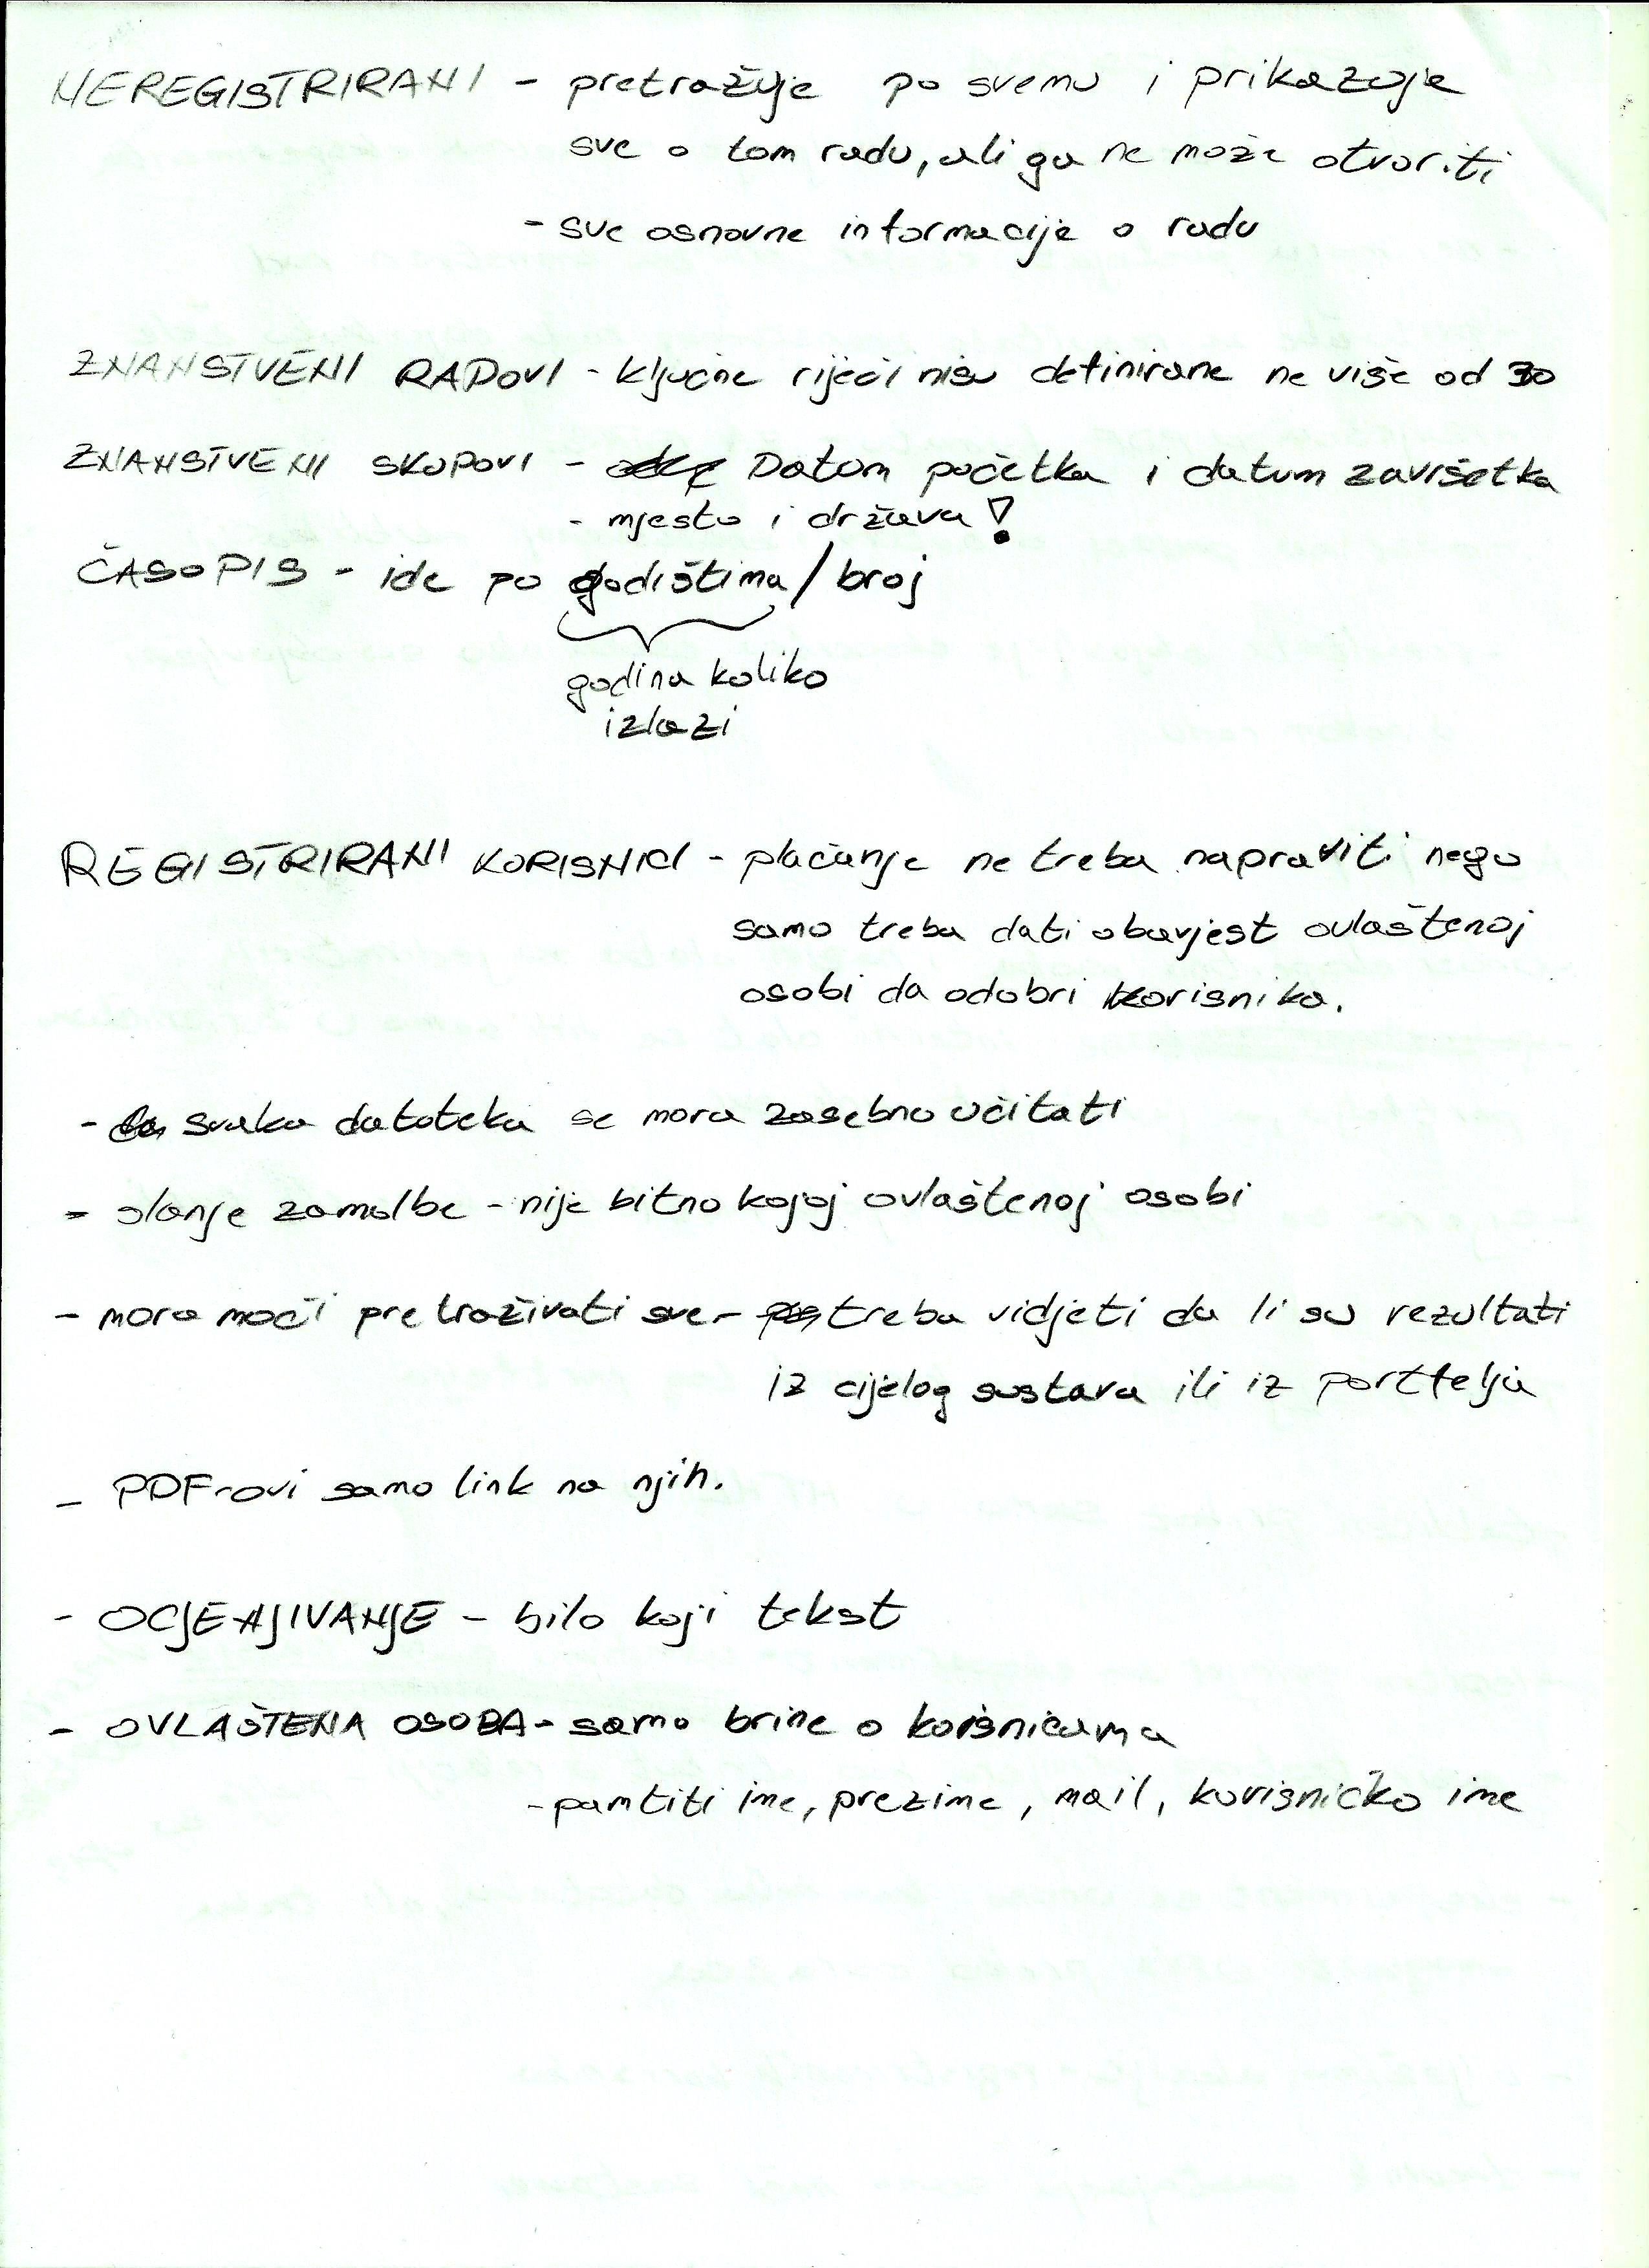 NEREGISTRIRANI - pretražuje po svemu i prikazuje
sve o tom radu, ali ga ne može otvoriti
- sve osnovne informacije o radu
ZNANSTVENI RADOVI - ključne riječi nisu definirane ne više od 30
ZNANSTVENI SKUPOVI - Datum početka i datum završetka
- mjesto i država!
ČASOPIS - ide po godištima / broj
godina koliko
izlazi
REGISTRIRANI KORISNICI - plaćanje ne treba napraviti nego
samo treba dati obavjest ovlaštenoj
osobi da odobri korisnika.
- svaka datoteka se mora zasebno učitati
- slanje zamolbe - nije bitno kojoj ovlaštenoj osobi
- mora moći pretraživati sve - treba vidjeti da li su rezultati
iz cijelog sustava ili iz portfelja
- PDF-ovi samo link na njih.
- OCJENJIVANJE - bilo koji tekst
- OVLAŠTENA OSOBA - samo brine o korisnicama
- pamtiti ime, prezime, mail, korisničko ime